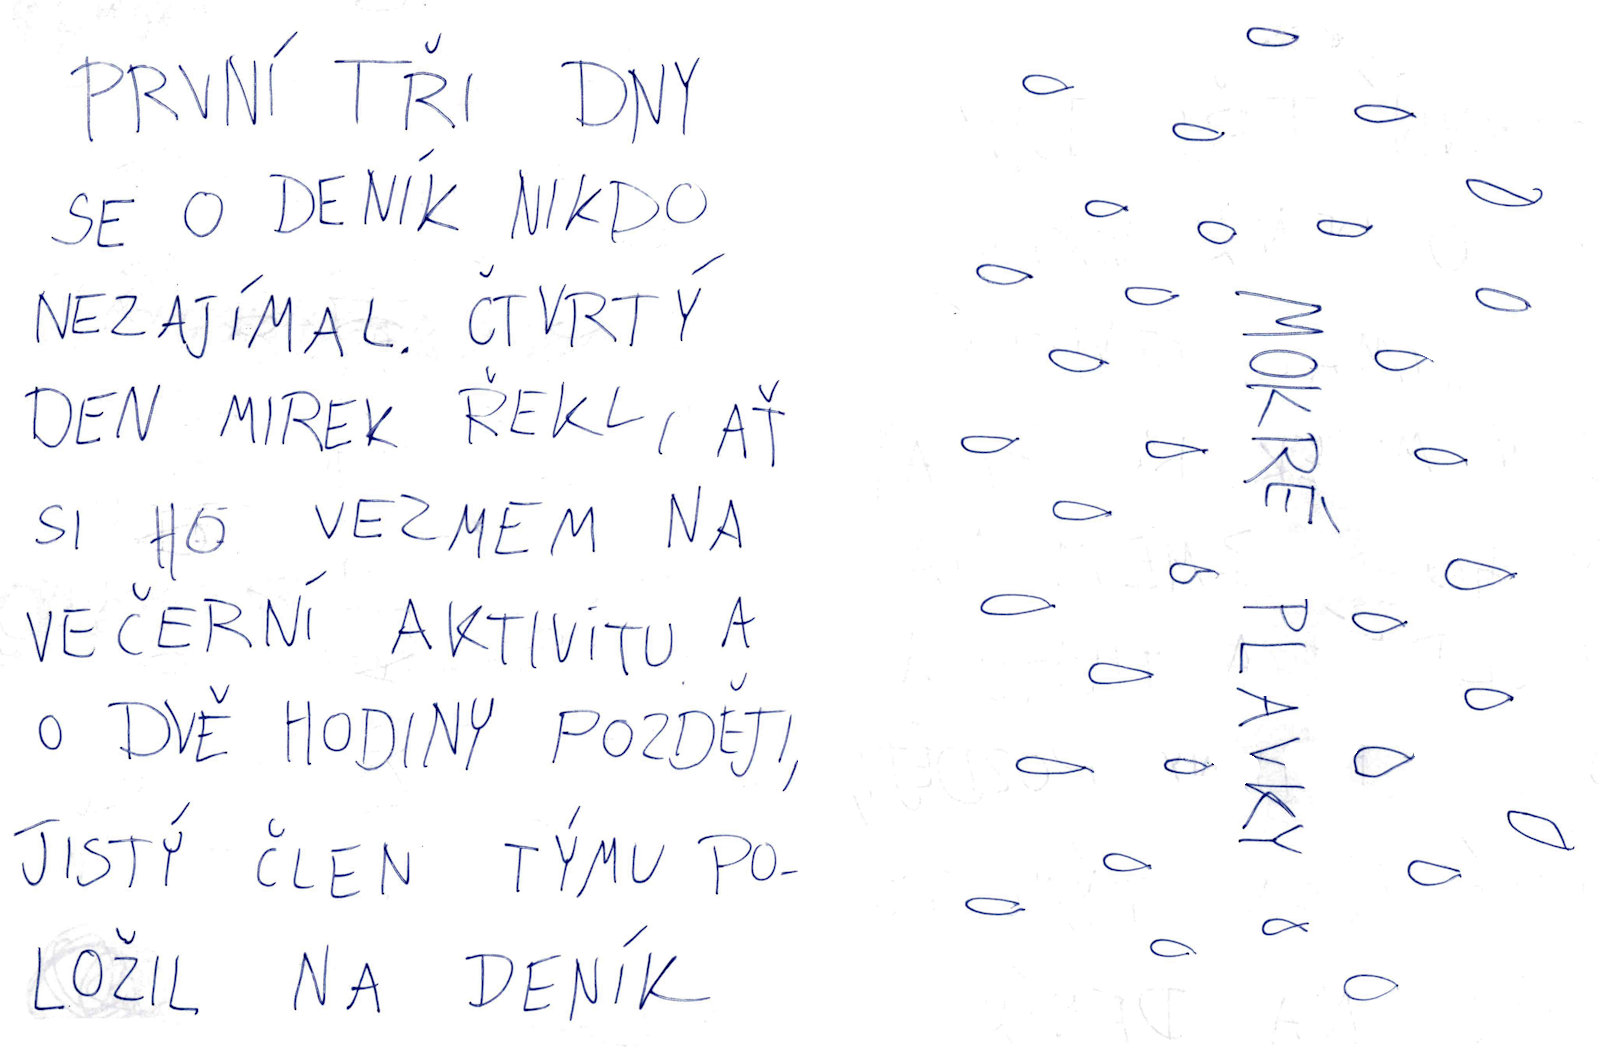 PRVNÍ TŘI DNY
SE O DENÍK NIKDO
NEZAJÍMAL. ČTVRTÝ
DEN MIREK ŘEKL, AŤ
SI HO VEZMEM NA
VEČERNÍ AKTIVITU A
O DVĚ HODINY POZDĚJI,
JISTÝ ČLEN TÝMU PO-
LOŽIL NA DENÍK
MOKRÉ PLAVKY